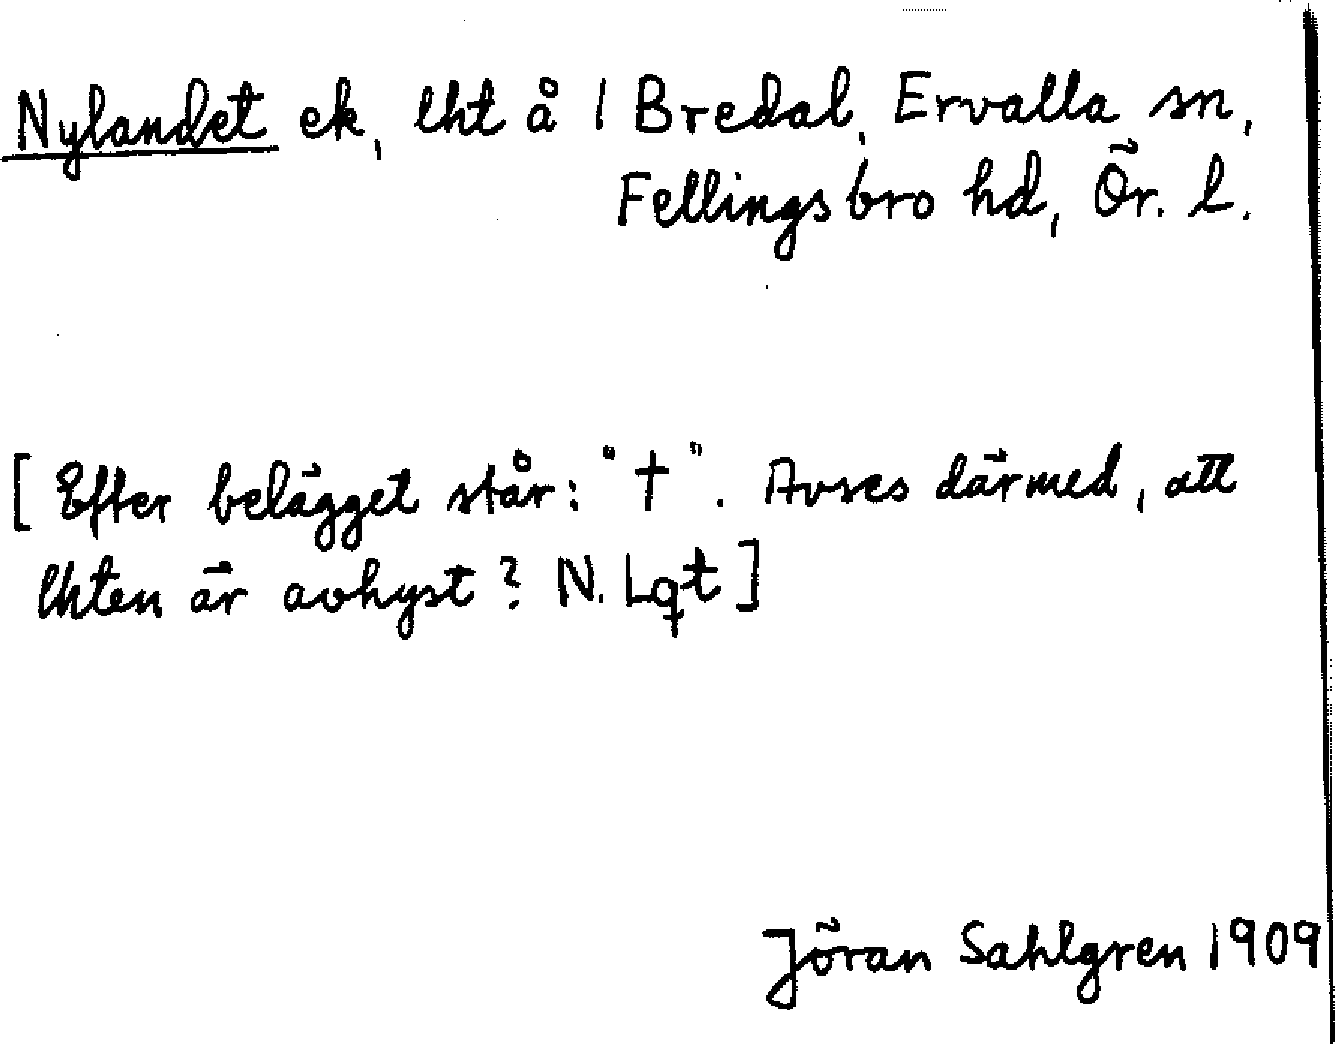 Nylandet ek, lht å 1 Bredal, Ervalla sn,
Fellingsbro hd, Ör. l.
[Efter belägget står: "†". Avses därmed, att
lhten är avhyst? N. Lqt]
Jöran Sahlgren 1909